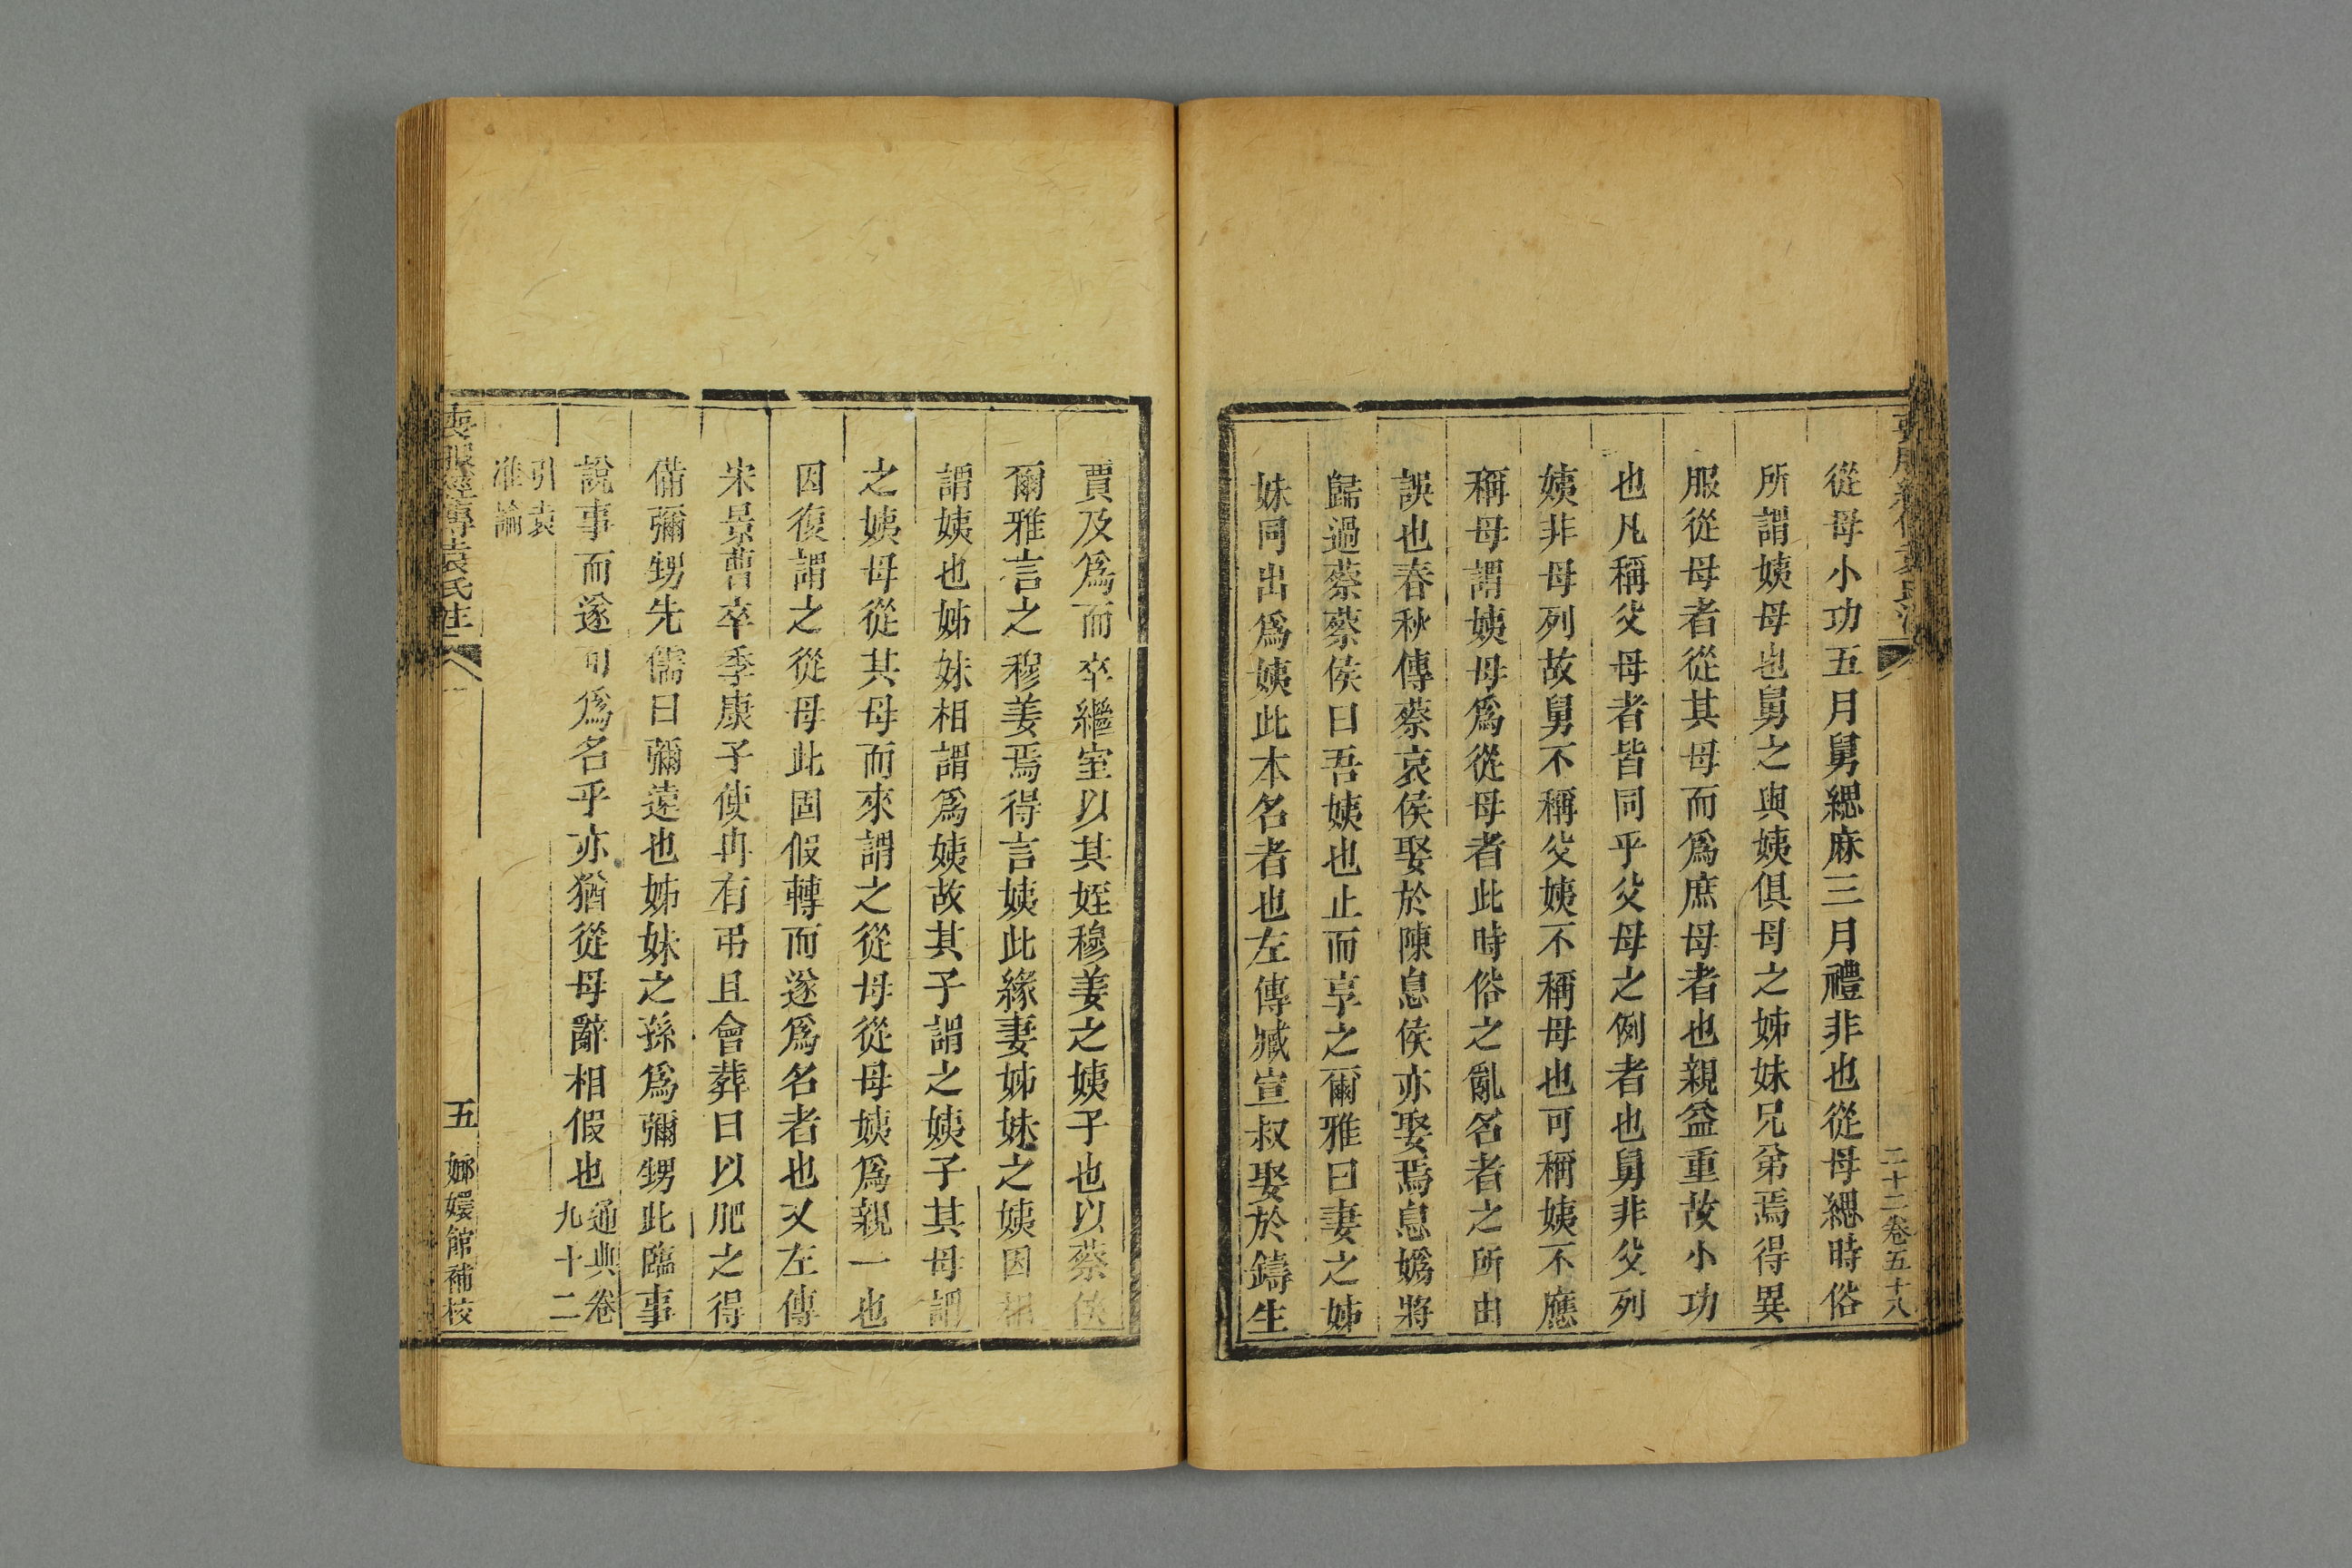 二十二卷五十八
從母小功五月舅緦麻三月禮非也從母緦時俗
所謂姨母也舅之與姨俱母之姊妹兄弟焉得異
服從母者從其母而爲庶母者也親益重故小功
也凡稱父母者皆同乎父母之例者也舅非父列
姨非母列故舅不稱父姨不稱母也可稱姨不應
稱母謂姨母爲從母者此時俗之亂名者之所由
誤也春秋傳蔡哀侯娶於陳息侯亦娶焉息嬀將
歸過蔡蔡侯曰吾姨也止而享之爾雅曰妻之姊
妹同出爲姨此本名者也左傳臧宣叔娶於鑄生
賈及爲而卒繼室以其姪穆姜之姨子也以蔡侯
爾雅言之穆姜焉得言姨此緣妻姊妹之姨因相
謂姨也姊妹相謂爲姨故其子謂之姨子其母謂
之姨母從其母而來謂之從母從母姨爲親一也
因復謂之從母此固假轉而遂爲名者也又左傳
宋景曹卒季康子使冉有弔且會葬曰以肥之得
備彌甥先儒曰彌遠也姊妹之孫爲彌甥此臨事
說事而遂可爲名乎亦猶從母辭相假也通典卷
九十二
引袁
准論
喪服經傳袁氏注
五
嫏嬛館補校